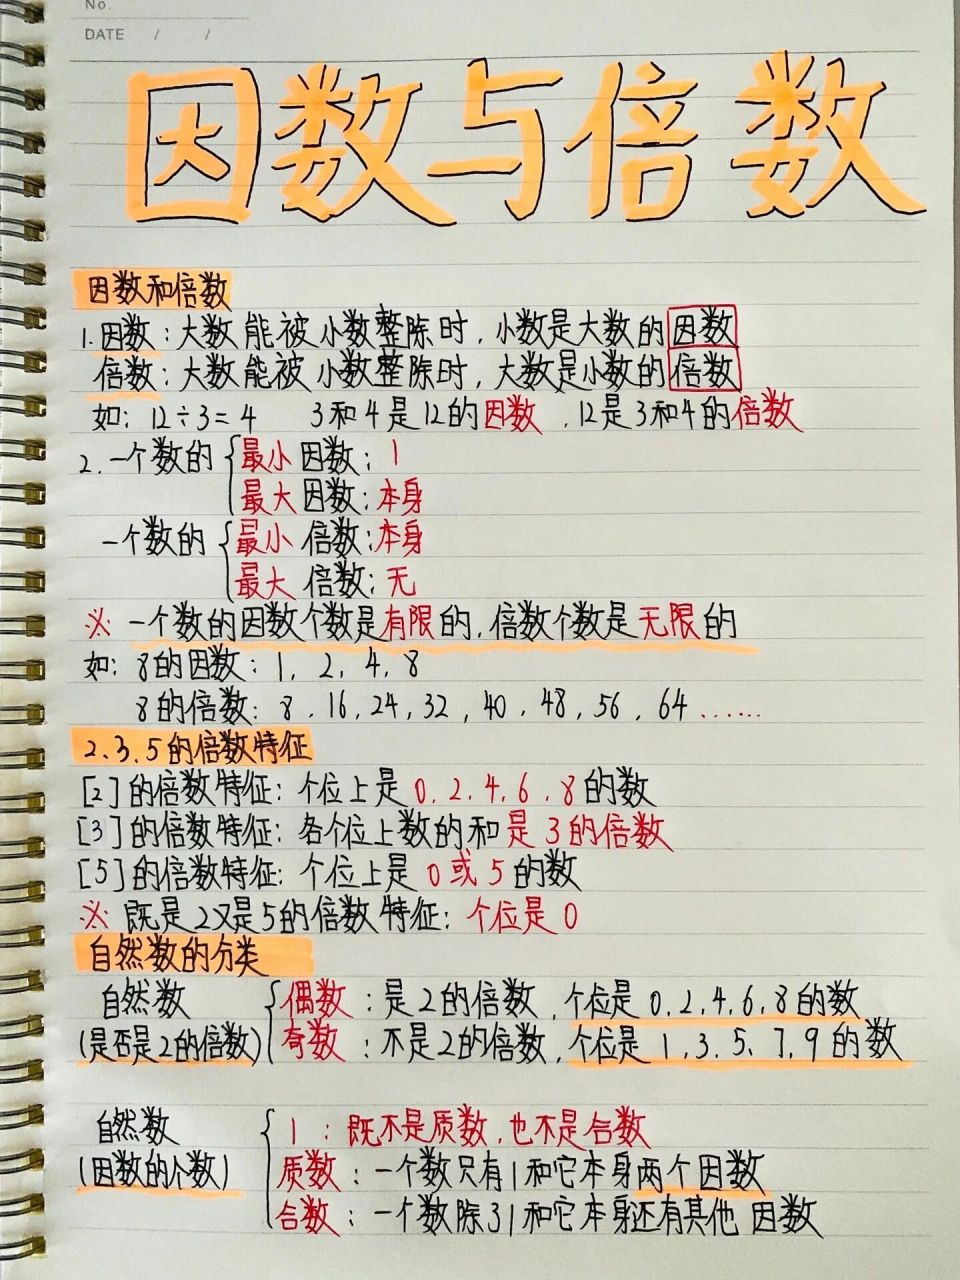 No.
DATE / /
因数与倍数
因数和倍数
1.因数：大数能被小数整除时，小数是大数的因数
倍数：大数能被小数整除时，大数是小数的倍数
如：12÷3=4 3和4是12的因数，12是3和4的倍数
2.一个数的{最小因数：1
最大因数：本身
一个数的{最小倍数：本身
最大倍数：无
※一个数的因数个数是有限的，倍数个数是无限的
如：8的因数：1，2，4，8
8的倍数：8，16，24，32，40，48，56，64……
2.3.5的倍数特征
[2]的倍数特征：个位上是0，2，4，6，8的数
[3]的倍数特征：各个位上数的和是3的倍数
[5]的倍数特征：个位上是0或5的数
※既是2又是5的倍数特征：个位是0
自然数的分类
自然数{偶数：是2的倍数，个位是0，2，4，6，8的数
(是否是2的倍数) 奇数：不是2的倍数，个位是1，3，5，7，9的数
自然数{1：既不是质数，也不是合数
(因数的个数) 质数：一个数只有1和它本身两个因数
合数：一个数除了1和它本身还有其他因数